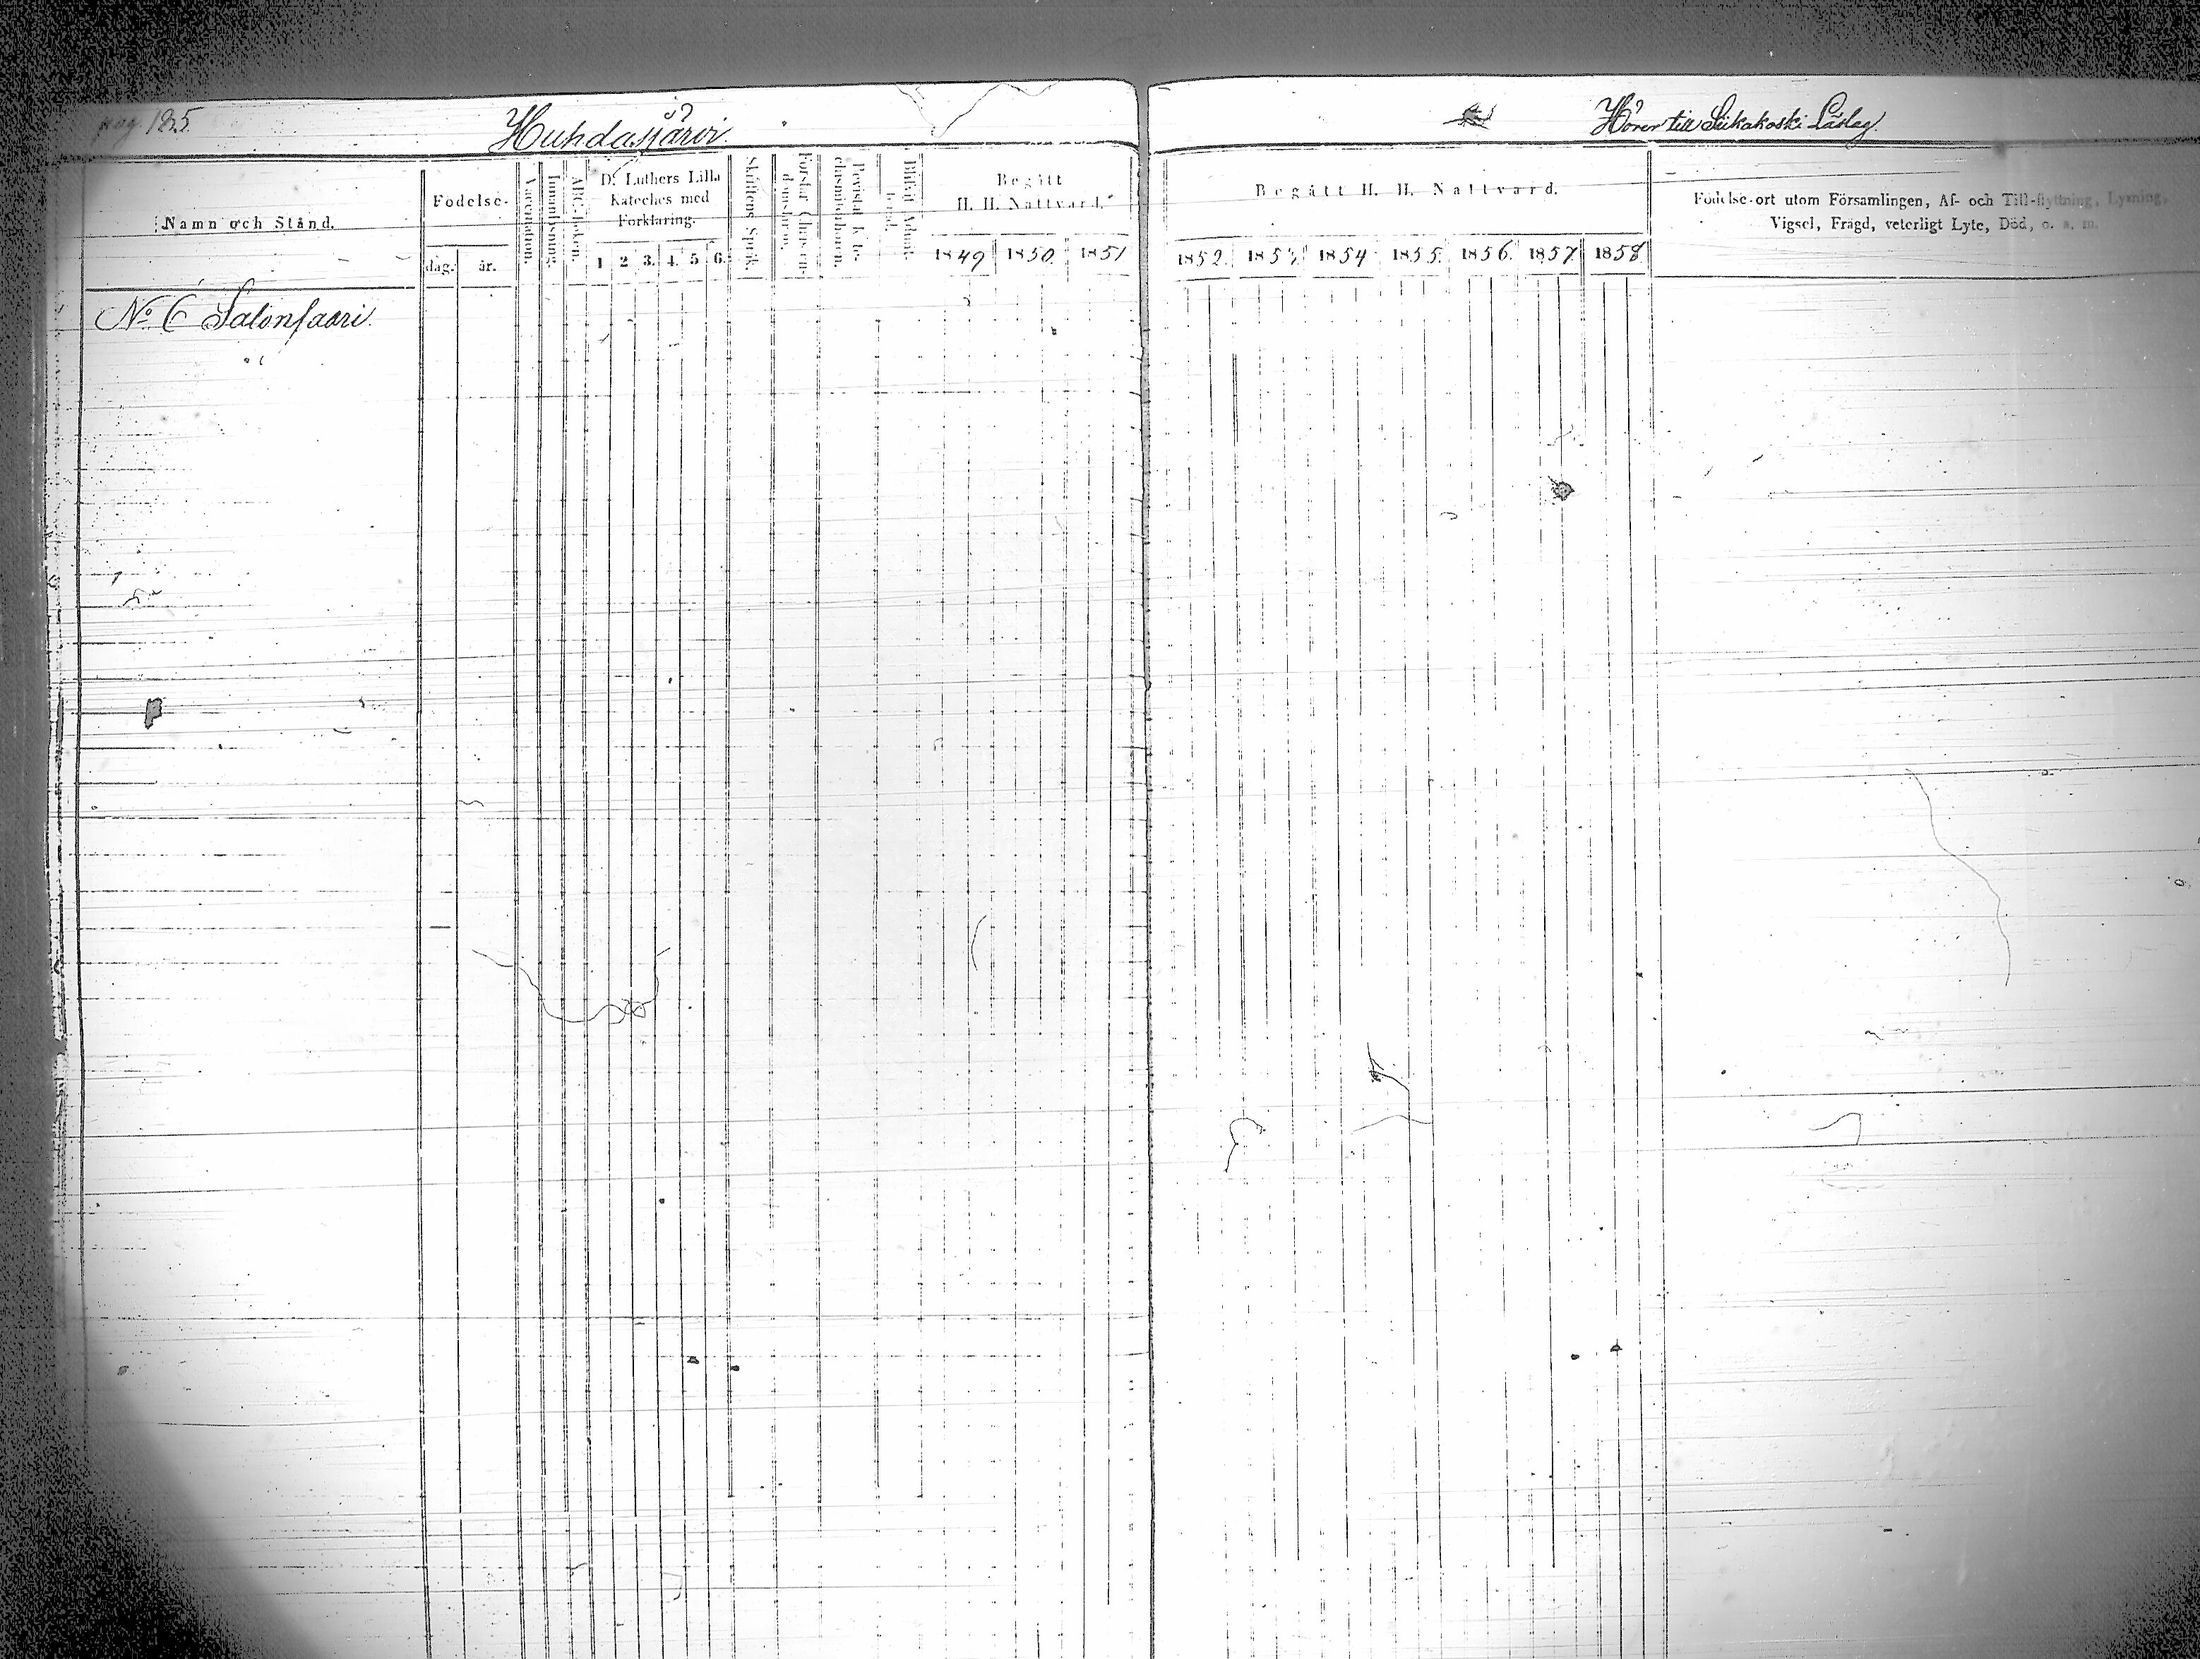 pag. 185.
Huhdasjärvi.
Hörer till Siikakoski Läslag.
Namn och Stånd.
Födelse-
dag.
år.
Vaccination.
Innanläsning.
ABC-boken.
D. Luthers Lilla
Kateches med
Förklaring.
1 2 3. 4. 5 6.
Skriftens Språk.
Förstår Christen-
domsläran.
Bevistat Kate-
chismiförhören.
Begått
H. H. Nattvard.
1849 1850. 1851
Begått H. H. Nattvard.
1852. 1853. 1854 1855. 1856. 1857. 1858
Födelse-ort utom Församlingen, Af- och Till-flyttning, Lysning,
Vigsel, Frägd, veterligt Lyte, Död, o. s. m.
No 6 Salonsaari.